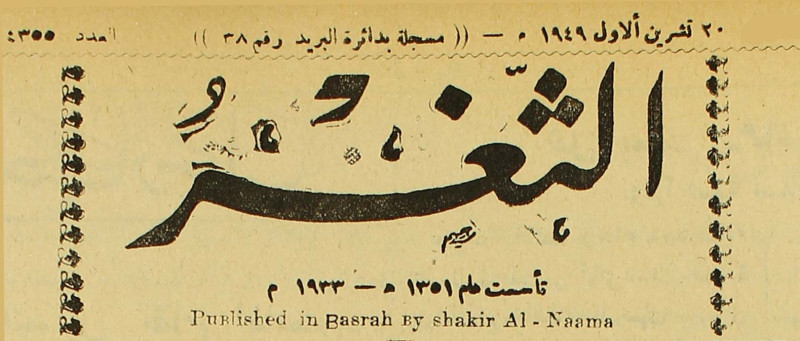 ٢٠ تشرين ألاول ١٩٤٩ ه — (( مسجلة بدائرة البريد رقم ٣٨ )) العدد ٤٣٥٥
الثغر
تأسست عام ١٣٥١ ه — ١٩٣٣ م
Published in Basrah By shakir Al - Naama